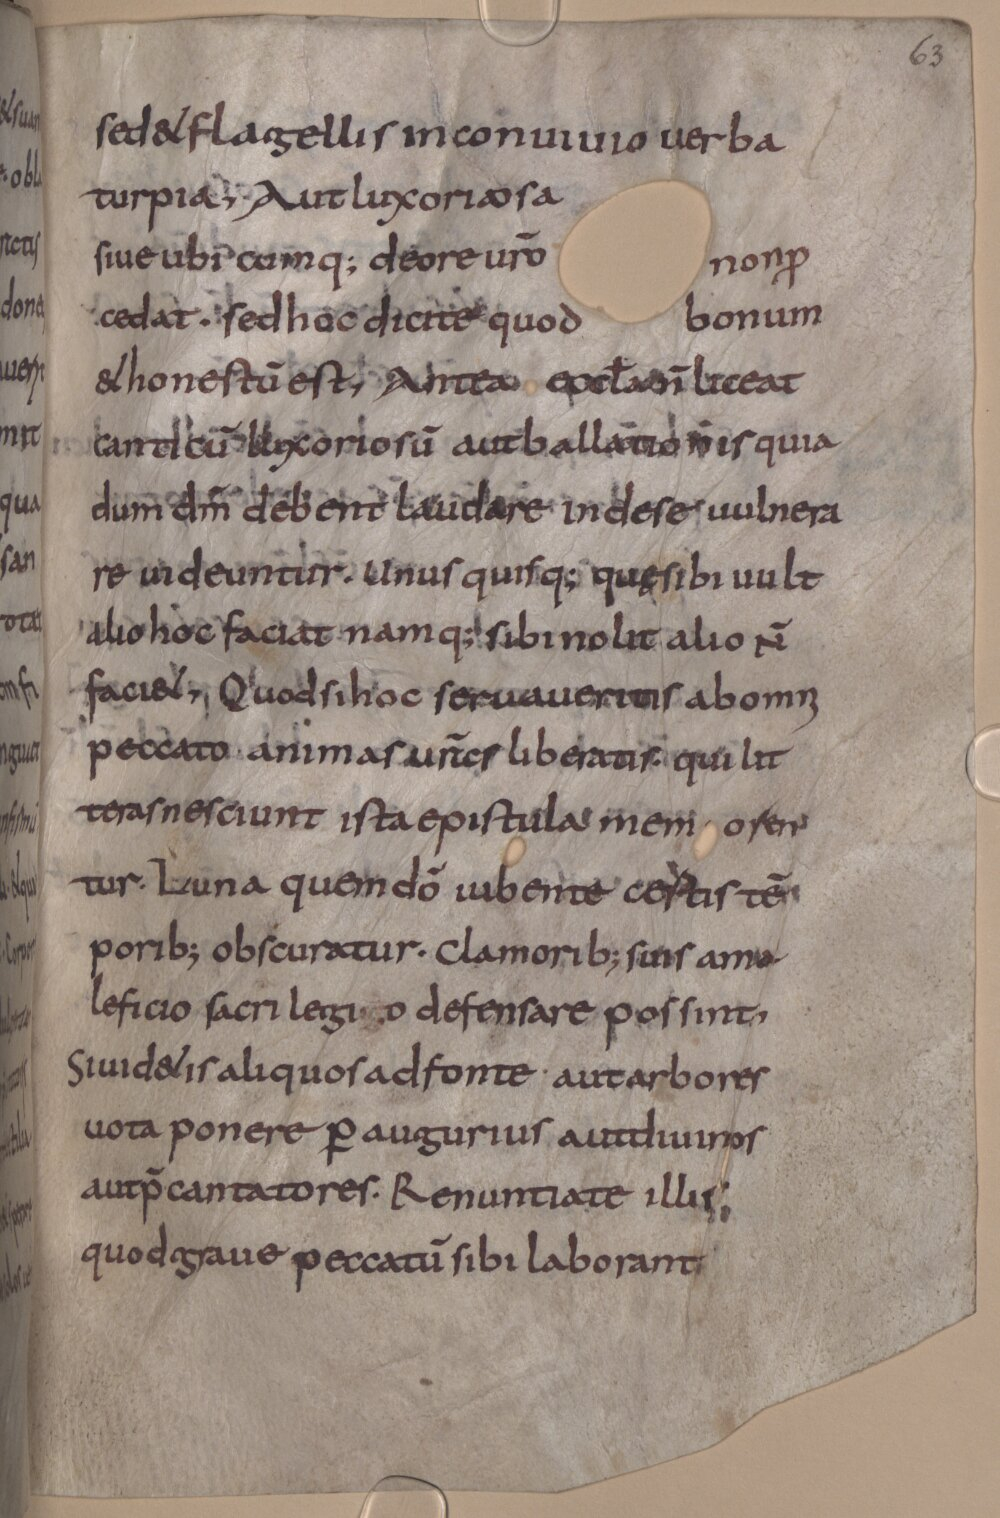 63
sed & flagellis in conuiuio uerba
turpia; Aut luxoriosa
siue ubi cumq; deore uro̅ non p
cedat. sed hoc dicite quod bonum
& honestu̅ est, Antea liceat
canticu̅ luxoriosu̅ aut ballationis quia
dum dm̅ debent laudare inde se uulnera
re uideuntur. Unus quisq; que sibi uult
alio hoc faciat namq; sibi nolit alio n̅
faci&, Quod si hoc seruaueritis ab omnꝫ
peccato animas ur̅as liberatis. qui lit
teras nesciunt ista epistula mem oren
tur. Luna quem do̅ iubente certis te̅
porib; obscuratur. Clamorib; suis a ma
leficio sacrilegio defensare possint,
Si uid&is aliquos ad fonte aut arbores
uota ponere ꝑ augurius aut diuinos
aut p̅cantatores. Renuntiate illis;
quod graue peccatu̅ sibi laborant